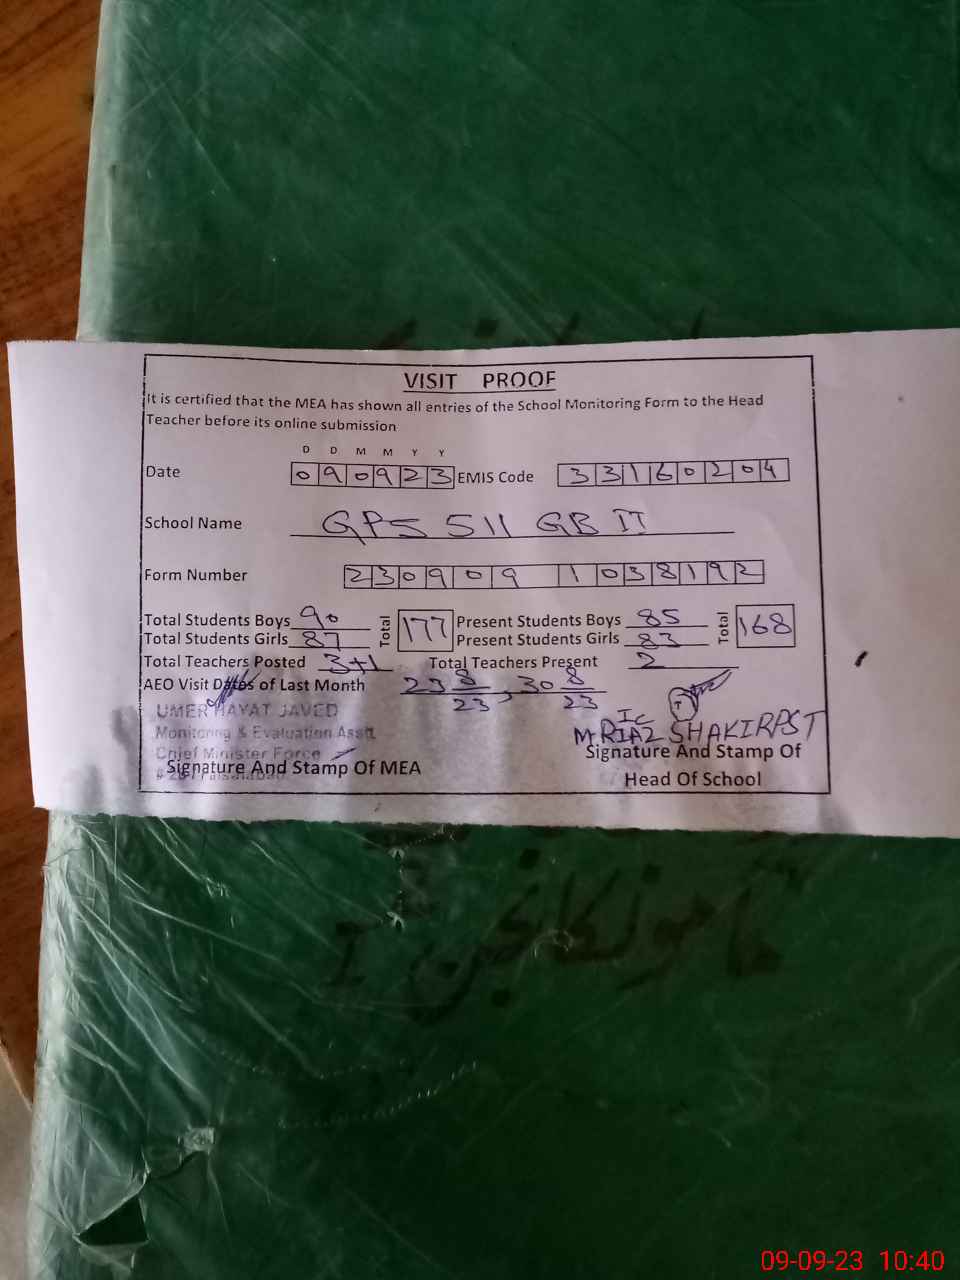 VISIT PROOF
It is certified that the MEA has shown all entries of the School Monitoring Form to the Head
Teacher before its online submission
D D M M Y Y
Date 090923 EMIS Code 33160204
School Name GPS 511 GB II
Form Number 230909 1038192
Total Students Boys 90 Total 177 Present Students Boys 85 Total 168
Total Students Girls 87 Present Students Girls 83
Total Teachers Posted 3+1 Total Teachers Present 2
AEO Visit Dates of Last Month 23 8/23, 30 8/23
UMER HAYAT JAVED
Monitoring & Evaluation Asstt.
Chief Minister Force
Signature And Stamp Of MEA
Ic
M RIAZ SHAKIR PST
Signature And Stamp Of
Head Of School
ماموں کانجن I
09-09-23 10:40